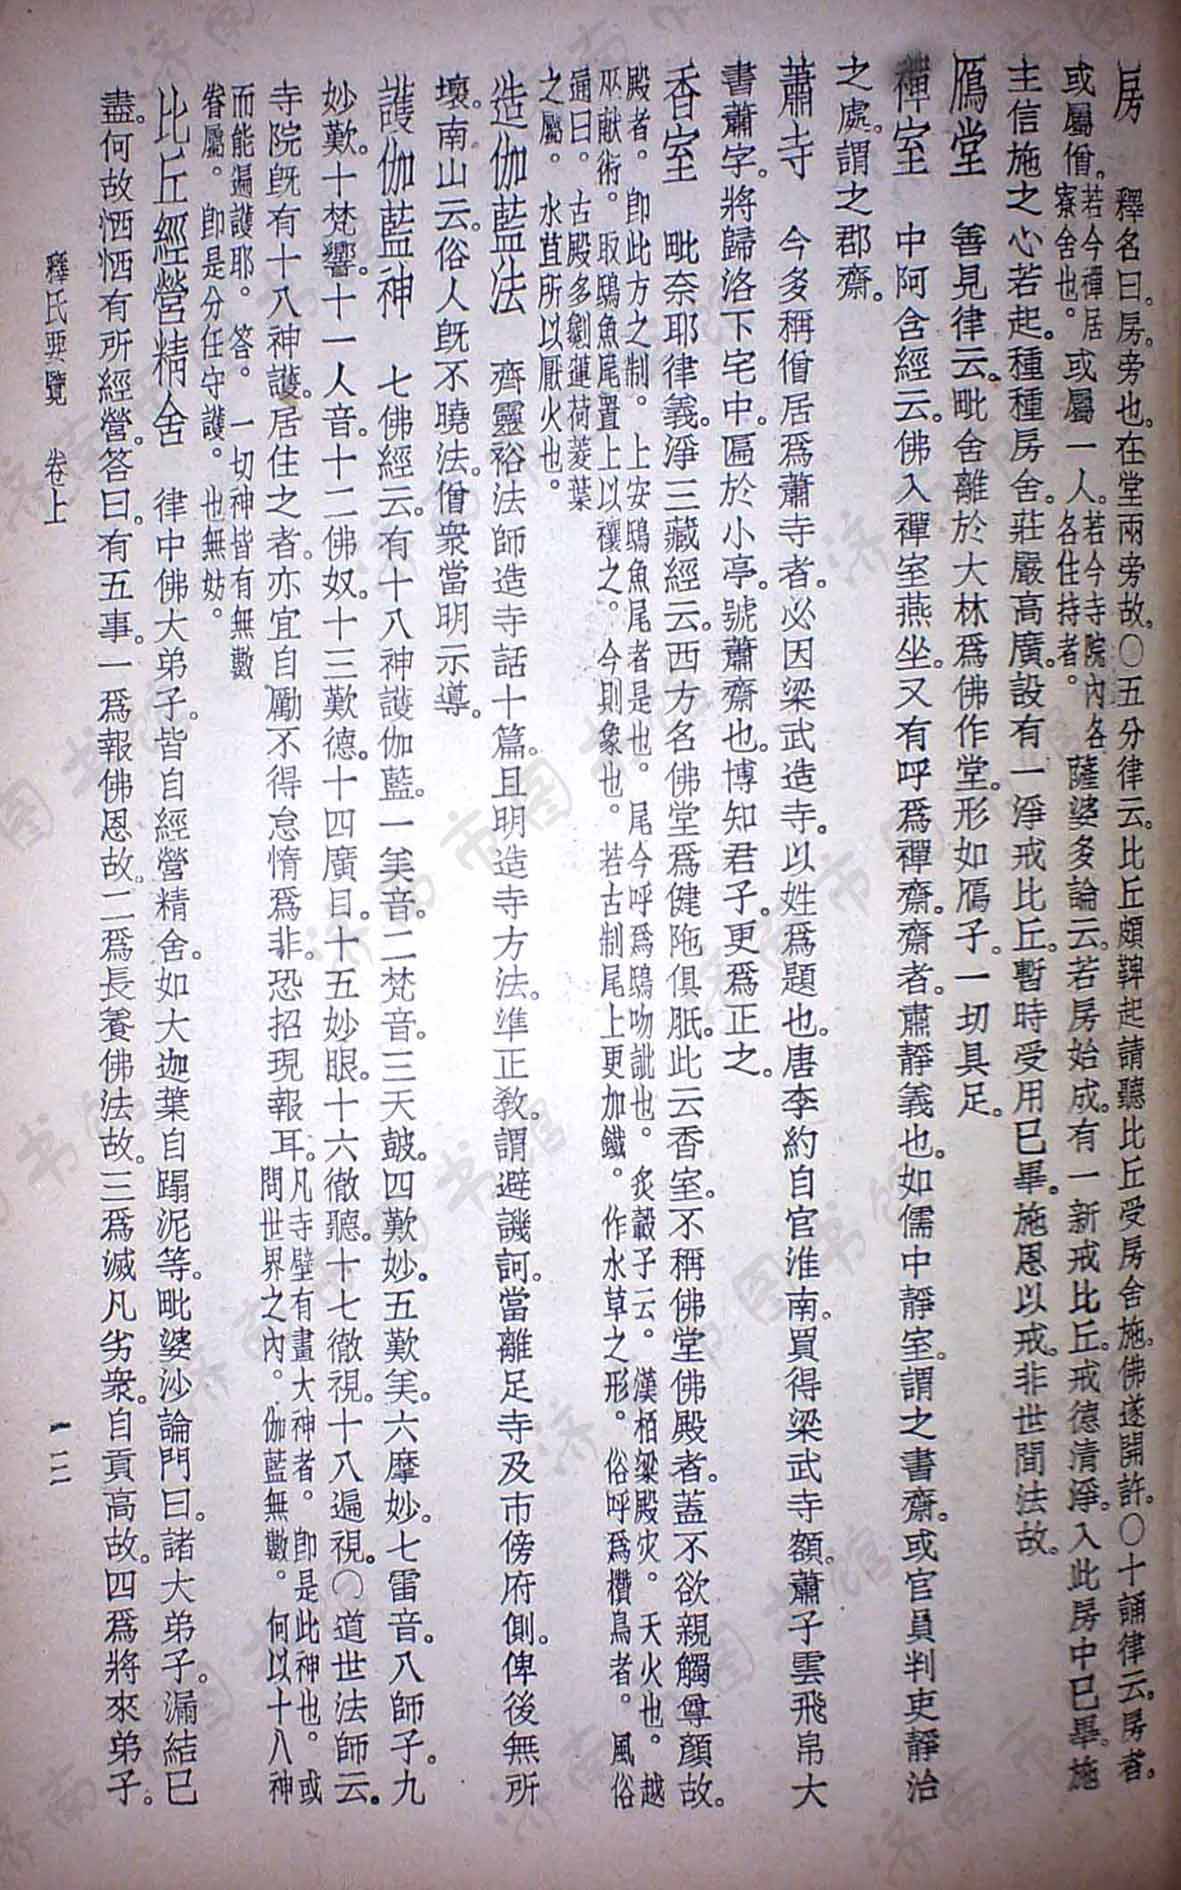 房　釋名曰。房。旁也。在堂兩旁故。〇五分律云。比丘頗鞞起請聽比丘受房舍施。佛遂開許。〇十誦律云。房者。
或屬僧。若今禪居寮舍也。或屬一人。若今寺院內各各住持者。薩婆多論云。若房始成。有一新戒比丘。戒德清淨。入此房中已畢。施
主信施之心若起。種種房舍。莊嚴高廣。設有一淨戒比丘。暫時受用已畢。施恩以戒。非世間法故。
鴈堂　善見律云。毗舍離於大林爲佛作堂。形如鴈子。一切具足。
禪室　中阿含經云。佛入禪室燕坐。又有呼爲禪齋。齋者。肅靜義也。如儒中靜室。謂之書齋。或官員判吏靜治
之處。謂之郡齋。
蕭寺　今多稱僧居爲蕭寺者。必因梁武造寺。以姓爲題也。唐李約自官淮南。買得梁武寺額。蕭子雲飛帛大
書蕭字。將歸洛下宅中。匾於小亭。號蕭齋也。博知君子。更爲正之。
香室　毗奈耶律義。淨三藏經云。西方名佛堂爲健陁俱胝。此云香室。不稱佛堂佛殿者。蓋不欲親觸尊顏故。
殿者。卽此方之制。上安鴟魚尾者是也。尾今呼爲鴟吻訛也。炙轂子云。漢栢梁殿灾。天火也。越
巫献術。取鴟魚尾置上以禳之。今則象也。若古制尾上更加鐵。作水草之形。俗呼爲欑鳥者。風俗
通曰。古殿多劉蓮荷菱葉
之屬。水苴所以厭火也。
造伽藍法　齊靈裕法師造寺誥十篇。且明造寺方法。準正敎。謂避譏訶。當離足寺及市傍府側。俾後無所
壞。南山云。俗人旣不曉法。僧衆當明示導。
護伽藍神　七佛經云。有十八神護伽藍。一美音。二梵音。三天皷。四歎妙。五歎美。六摩妙。七雷音。八師子。九
妙歎。十梵響。十一人音。十二佛奴。十三歎德。十四廣目。十五妙眼。十六徹聽。十七徹視。十八遍視。〇道世法師云。
寺院旣有十八神護。居住之者。亦宜自勵。不得怠惰爲非。恐招現報耳。凡寺壁有畫大神者。卽是此神也。或問世界之內。伽藍無數。何以十八神
而能遍護耶。答。一切神皆有無數
眷屬。卽是分任守護。也無妨。
比丘經營精舍　律中佛大弟子。皆自經營精舍。如大迦葉自蹋泥等。毗婆沙論門曰。諸大弟子。漏結已
盡。何故恓恓有所經營。答曰。有五事。一爲報佛恩故。二爲長養佛法故。三爲滅凡劣衆。自貢高故。四爲將來弟子。
釋氏要覽　卷上
一三